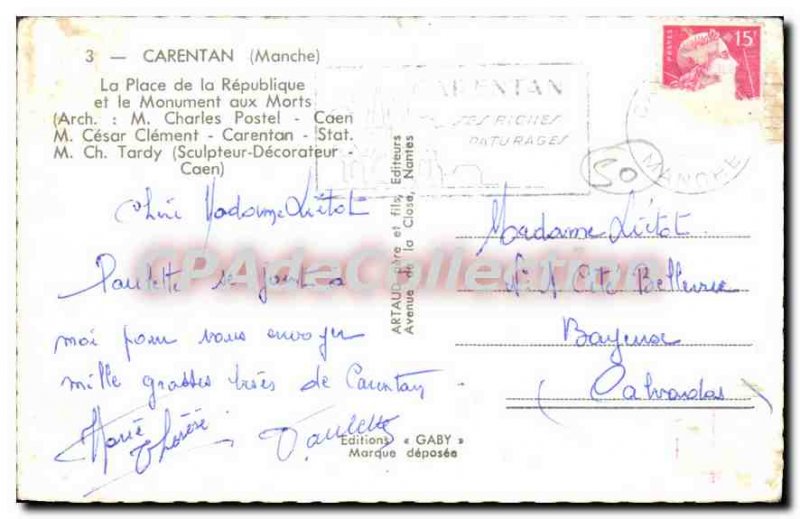 3 — CARENTAN (Manche)
La Place de la République
et le Monument aux Morts
(Arch. : M. Charles Postel - Caen
M. César Clément - Carentan - Stat.
M. Ch. Tardy (Sculpteur-Décorateur -
Caen)
CARENTAN
SES RICHES
PATURAGES
MANCHE
POSTES
15
50
ARTAUD père et fils, Editeurs
Avenue de la Close, Nantes
Madame Liétot
Paulette se joint a
moi pour vous envoyer
mille grosses bises de Carentan
Marie
Thérèse
Paulette
Madame Liétot
Cité Bellevue
Bayeux
(Calvados)
Editions « GABY »
Marque déposée
CPAdeCollection